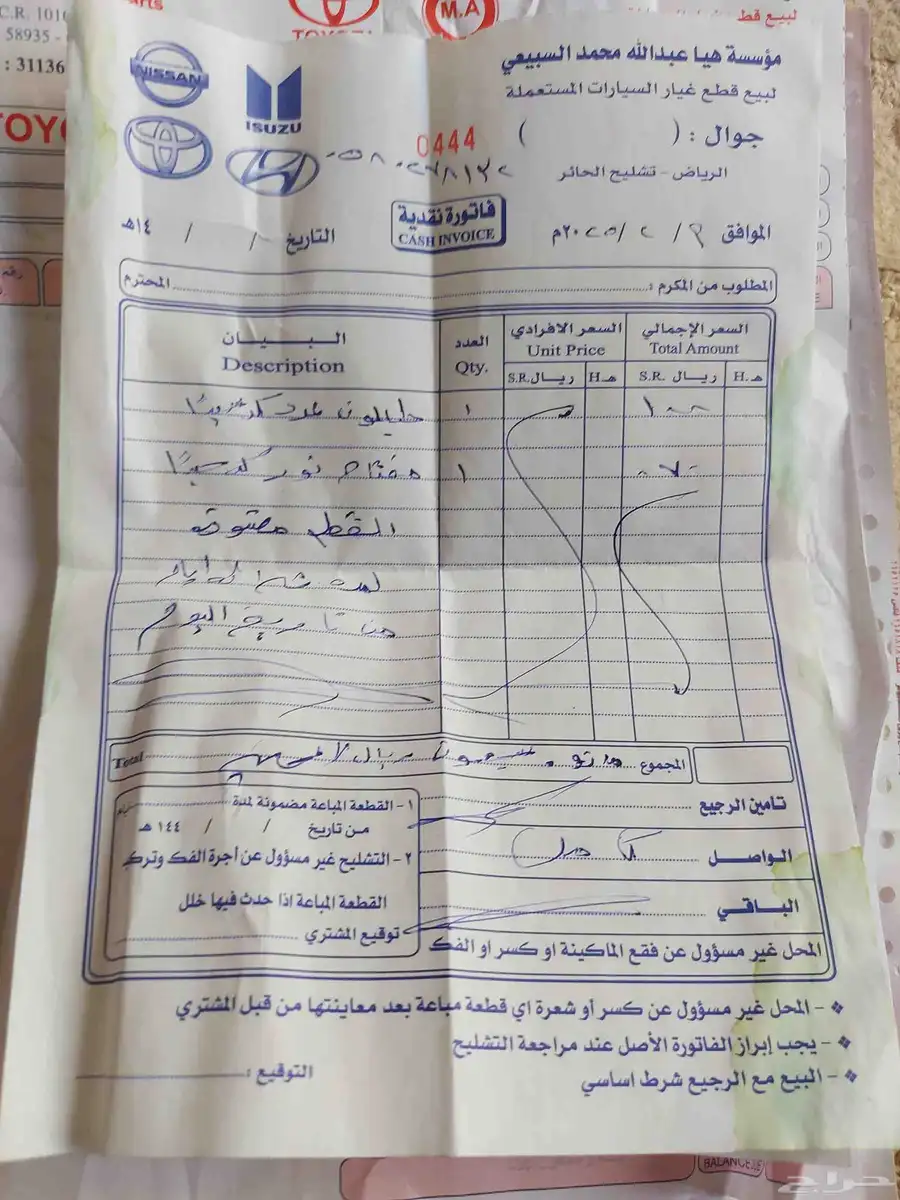 C.R. 1010
58935 -
: 31136
arts
TOYOTA
M.A
لبيع قط
TOYO
NISSAN
ISUZU
مؤسسة هيا عبدالله محمد السبيعي
لبيع قطع غيار السيارات المستعملة
جوال : ( )
0444
الرياض - تشليح الحائر
فاتورة نقدية
CASH INVOICE
الموافق ٩ / ٢ / ٢٠٢٥م
التاريخ / / ١٤هـ
المطلوب من المكرم : المحترم
البـــيـــان العدد السعر الافرادي السعر الإجمالي
Description Qty. Unit Price Total Amount
S.R. ريـال هـ.H S.R. ريـال هـ.H
١ ١٠٠
مفتاح نور ١ ٧٠
القطع
من تاريخ اليوم
المجموع ريال لا Total
تامين الرجيع
الواصل كامل
الباقي
المحل غير مسؤول عن فقع الماكينة او كسر او الفك
١- القطعة المباعة مضمونة لمدة
من تاريخ / / ١٤٤ هـ
٢- التشليح غير مسؤول عن أجرة الفك وتركـ
القطعة المباعة اذا حدث فيها خلل
توقيع المشتري
- المحل غير مسؤول عن كسر أو شعرة اي قطعة مباعة بعد معاينتها من قبل المشتري
- يجب إبراز الفاتورة الأصل عند مراجعة التشليح
- البيع مع الرجيع شرط اساسي
التوقيع :
BALANCE
حراج